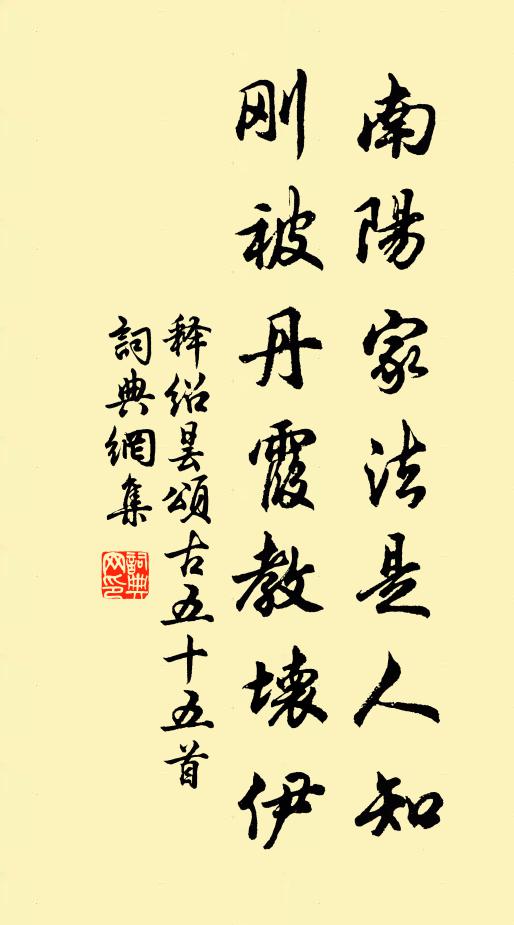 南陽家法是人知
刚被丹霞教壞伊
释绍昙頌古五十五首
詞典網集
詞典网印